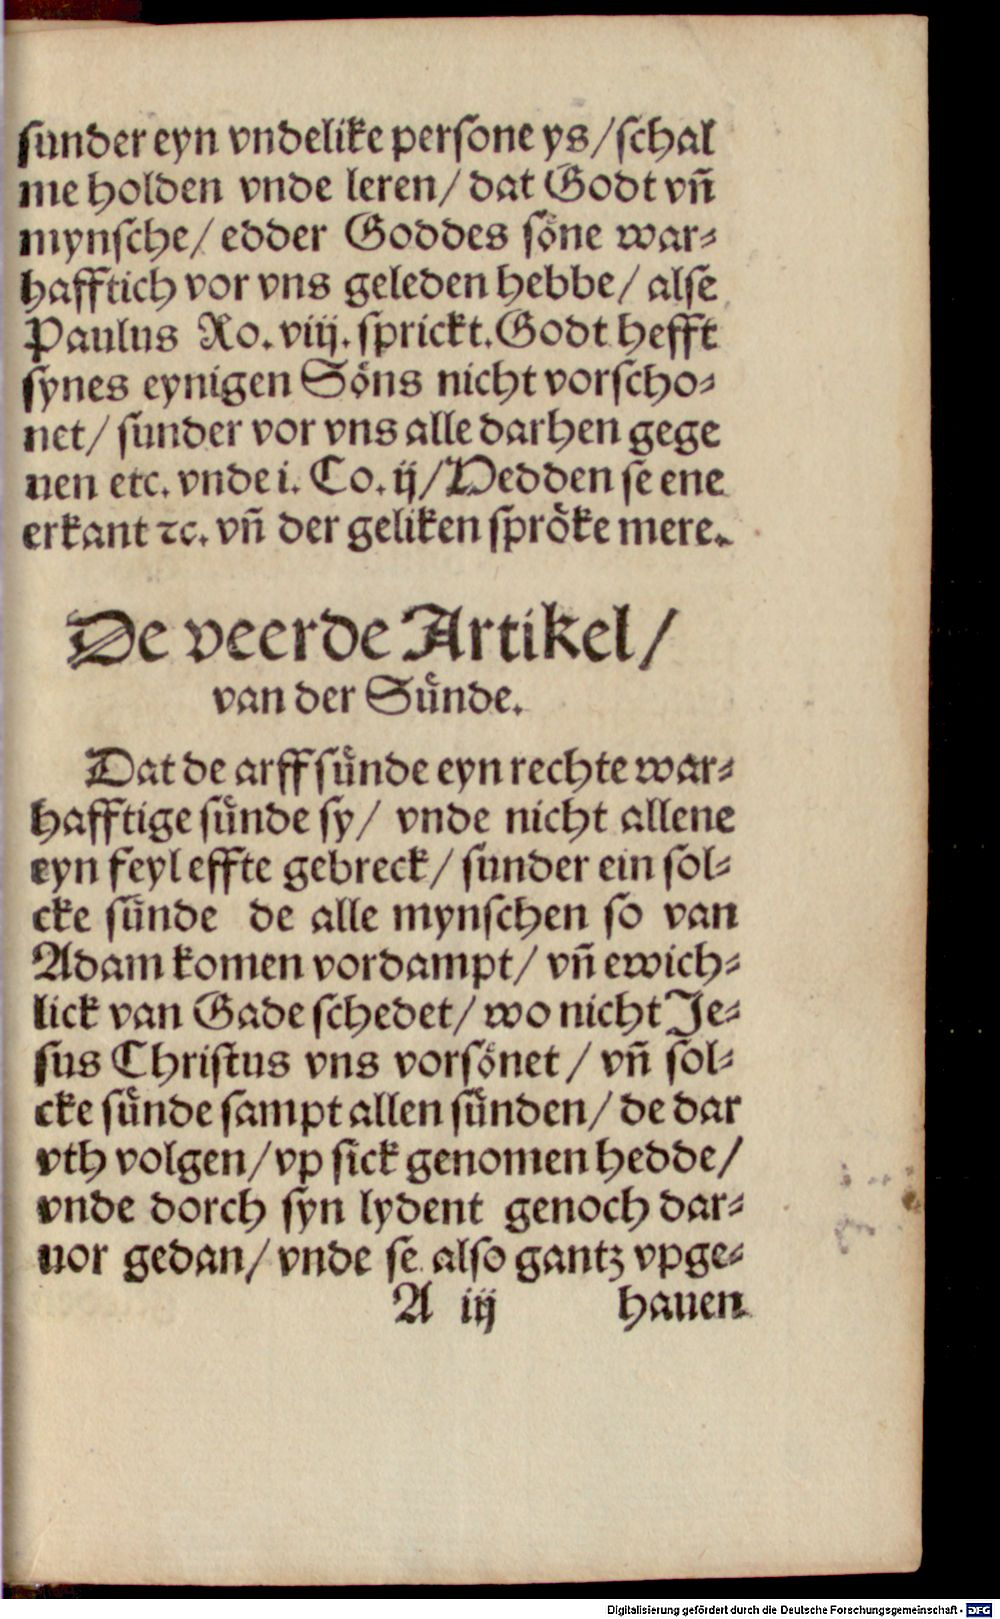 sunder eyn vndelike persone ys/schal
me holden vnde leren/ dat Godt vñ
mynsche/ edder Goddes soͤne war⸗
hafftich vor vns geleden hebbe/ alse
Paulus Ro. viij. sprickt. Godt hefft
synes eynigen Soͤns nicht vorscho⸗
net/ sunder vor vns alle darhen gege
uen etc. vnde i. Co. ij/Hedden se ene
erkant ⁊c. vñ der geliken sproͤke mere.
De veerde Artikel/
van der Suͤnde.
Dat de arffsuͤnde eyn rechte war⸗
hafftige suͤnde sy/ vnde nicht allene
eyn feyl effte gebreck/ sunder ein sol⸗
cke suͤnde de alle mynschen so van
Adam komen vordampt/ vñ ewich⸗
lick van Gade schedet/ wo nicht Je⸗
sus Christus vns vorsoͤnet / vñ sol⸗
cke suͤnde sampt allen suͤnden/ de dar
vth volgen/ vp sick genomen hedde/
vnde dorch syn lydent genoch dar⸗
uor gedan/ vnde se also gantz vpge⸗
A iij hauen
Digitalisierung gefördert durch die Deutsche Forschungsgemeinschaft - DFG